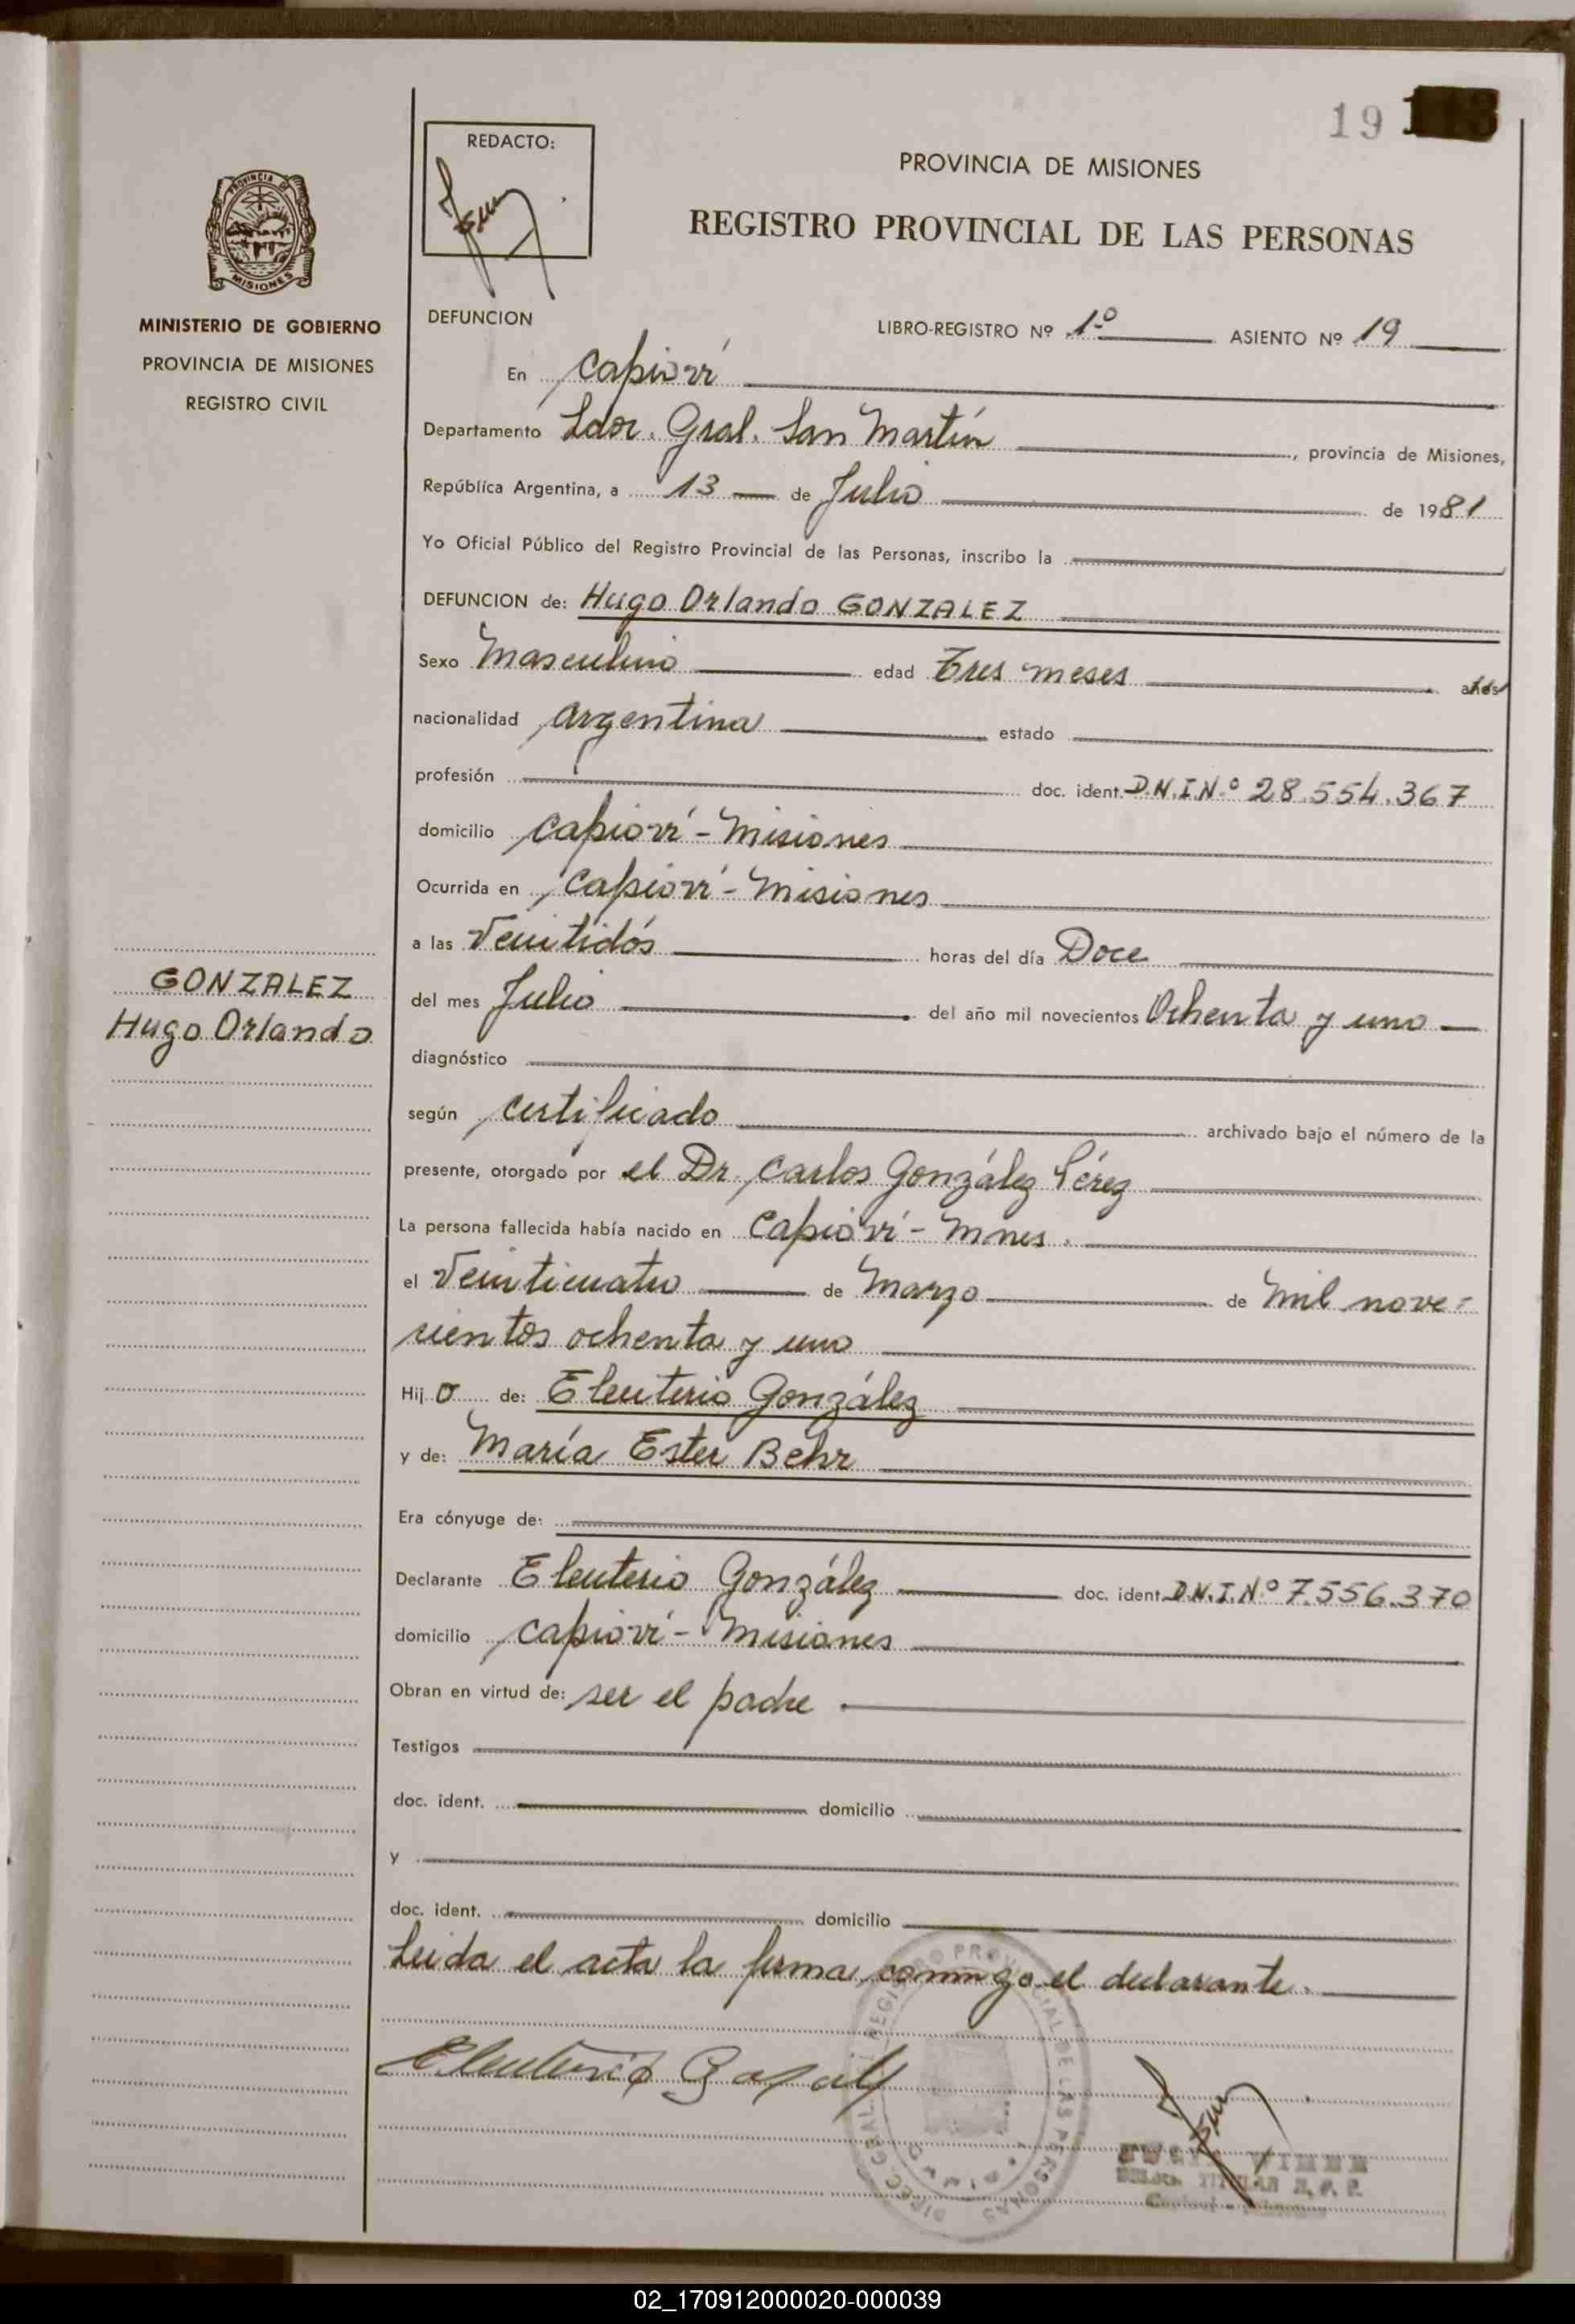 19
REDACTO:
PROVINCIA DE MISIONES
REGISTRO PROVINCIAL DE LAS PERSONAS
PROVINCIA DE
MISIONES
MINISTERIO DE GOBIERNO
PROVINCIA DE MISIONES
REGISTRO CIVIL
DEFUNCION
LIBRO-REGISTRO Nº 1º ASIENTO Nº 19
En Capioví
Departamento Ldor. Gral. San Martín, provincia de Misiones,
República Argentina, a 13 de Julio de 1981
Yo Oficial Público del Registro Provincial de las Personas, inscribo la
DEFUNCION de: Hugo Orlando GONZALEZ
Sexo Masculino edad Tres meses años
nacionalidad argentina estado
profesión doc. ident. D.N.I.Nº 28.554.367
domicilio Capioví - Misiones
Ocurrida en Capioví - Misiones
a las Veintidós horas del día Doce
GONZALEZ
Hugo Orlando
del mes Julio del año mil novecientos Ochenta y uno
diagnóstico
según certificado archivado bajo el número de la
presente, otorgado por el Dr. Carlos González Pérez
La persona fallecida había nacido en Capioví - Mnes.
el Veinticuatro de Marzo de Mil nove=
cientos ochenta y uno
Hijo de: Eleuterio González
y de: María Ester Behr
Era cónyuge de:
Declarante Eleuterio González doc. ident. D.N.I.Nº 7.556.370
domicilio Capioví - Misiones
Obran en virtud de: ser el padre.
Testigos
doc. ident. domicilio
y
doc. ident. domicilio
Leida el acta la firma conmigo el declarante.
Eleuterio
REGISTRO PROVINCIAL DE LAS PERSONAS
02_170912000020-000039